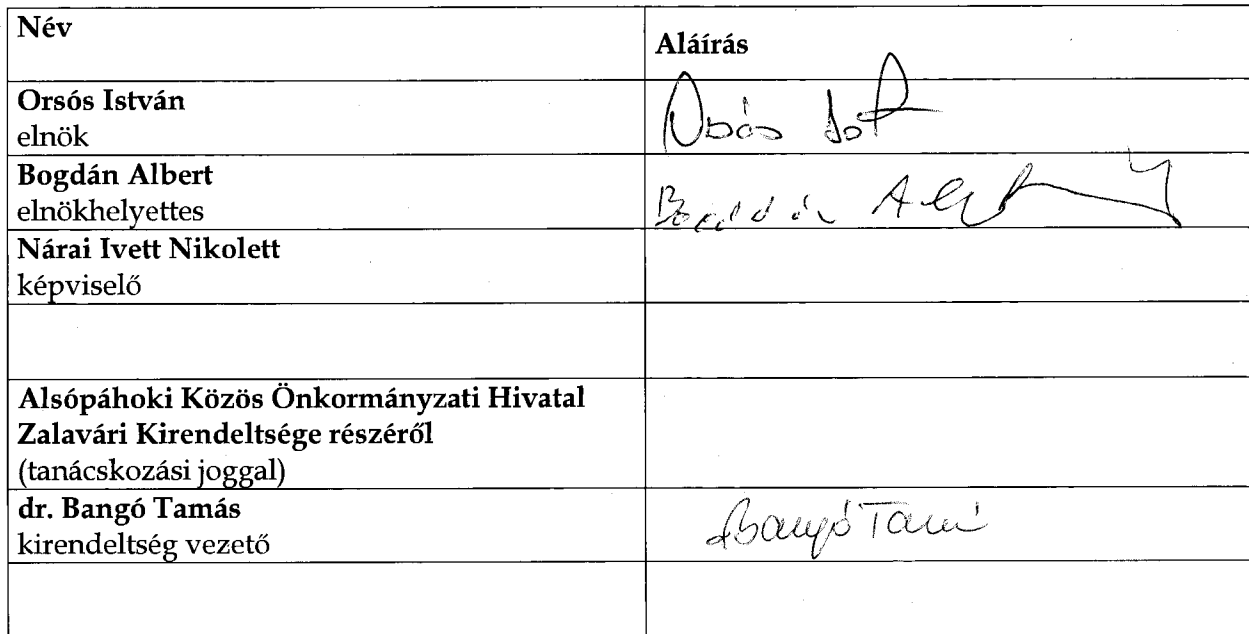 Név
Aláírás
Orsós István
elnök
Bogdán Albert
elnökhelyettes
Bogdán
Nárai Ivett Nikolett
képviselő
Alsópáhoki Közös Önkormányzati Hivatal
Zalavári Kirendeltsége részéről
(tanácskozási joggal)
dr. Bangó Tamás
kirendeltség vezető
Bangó